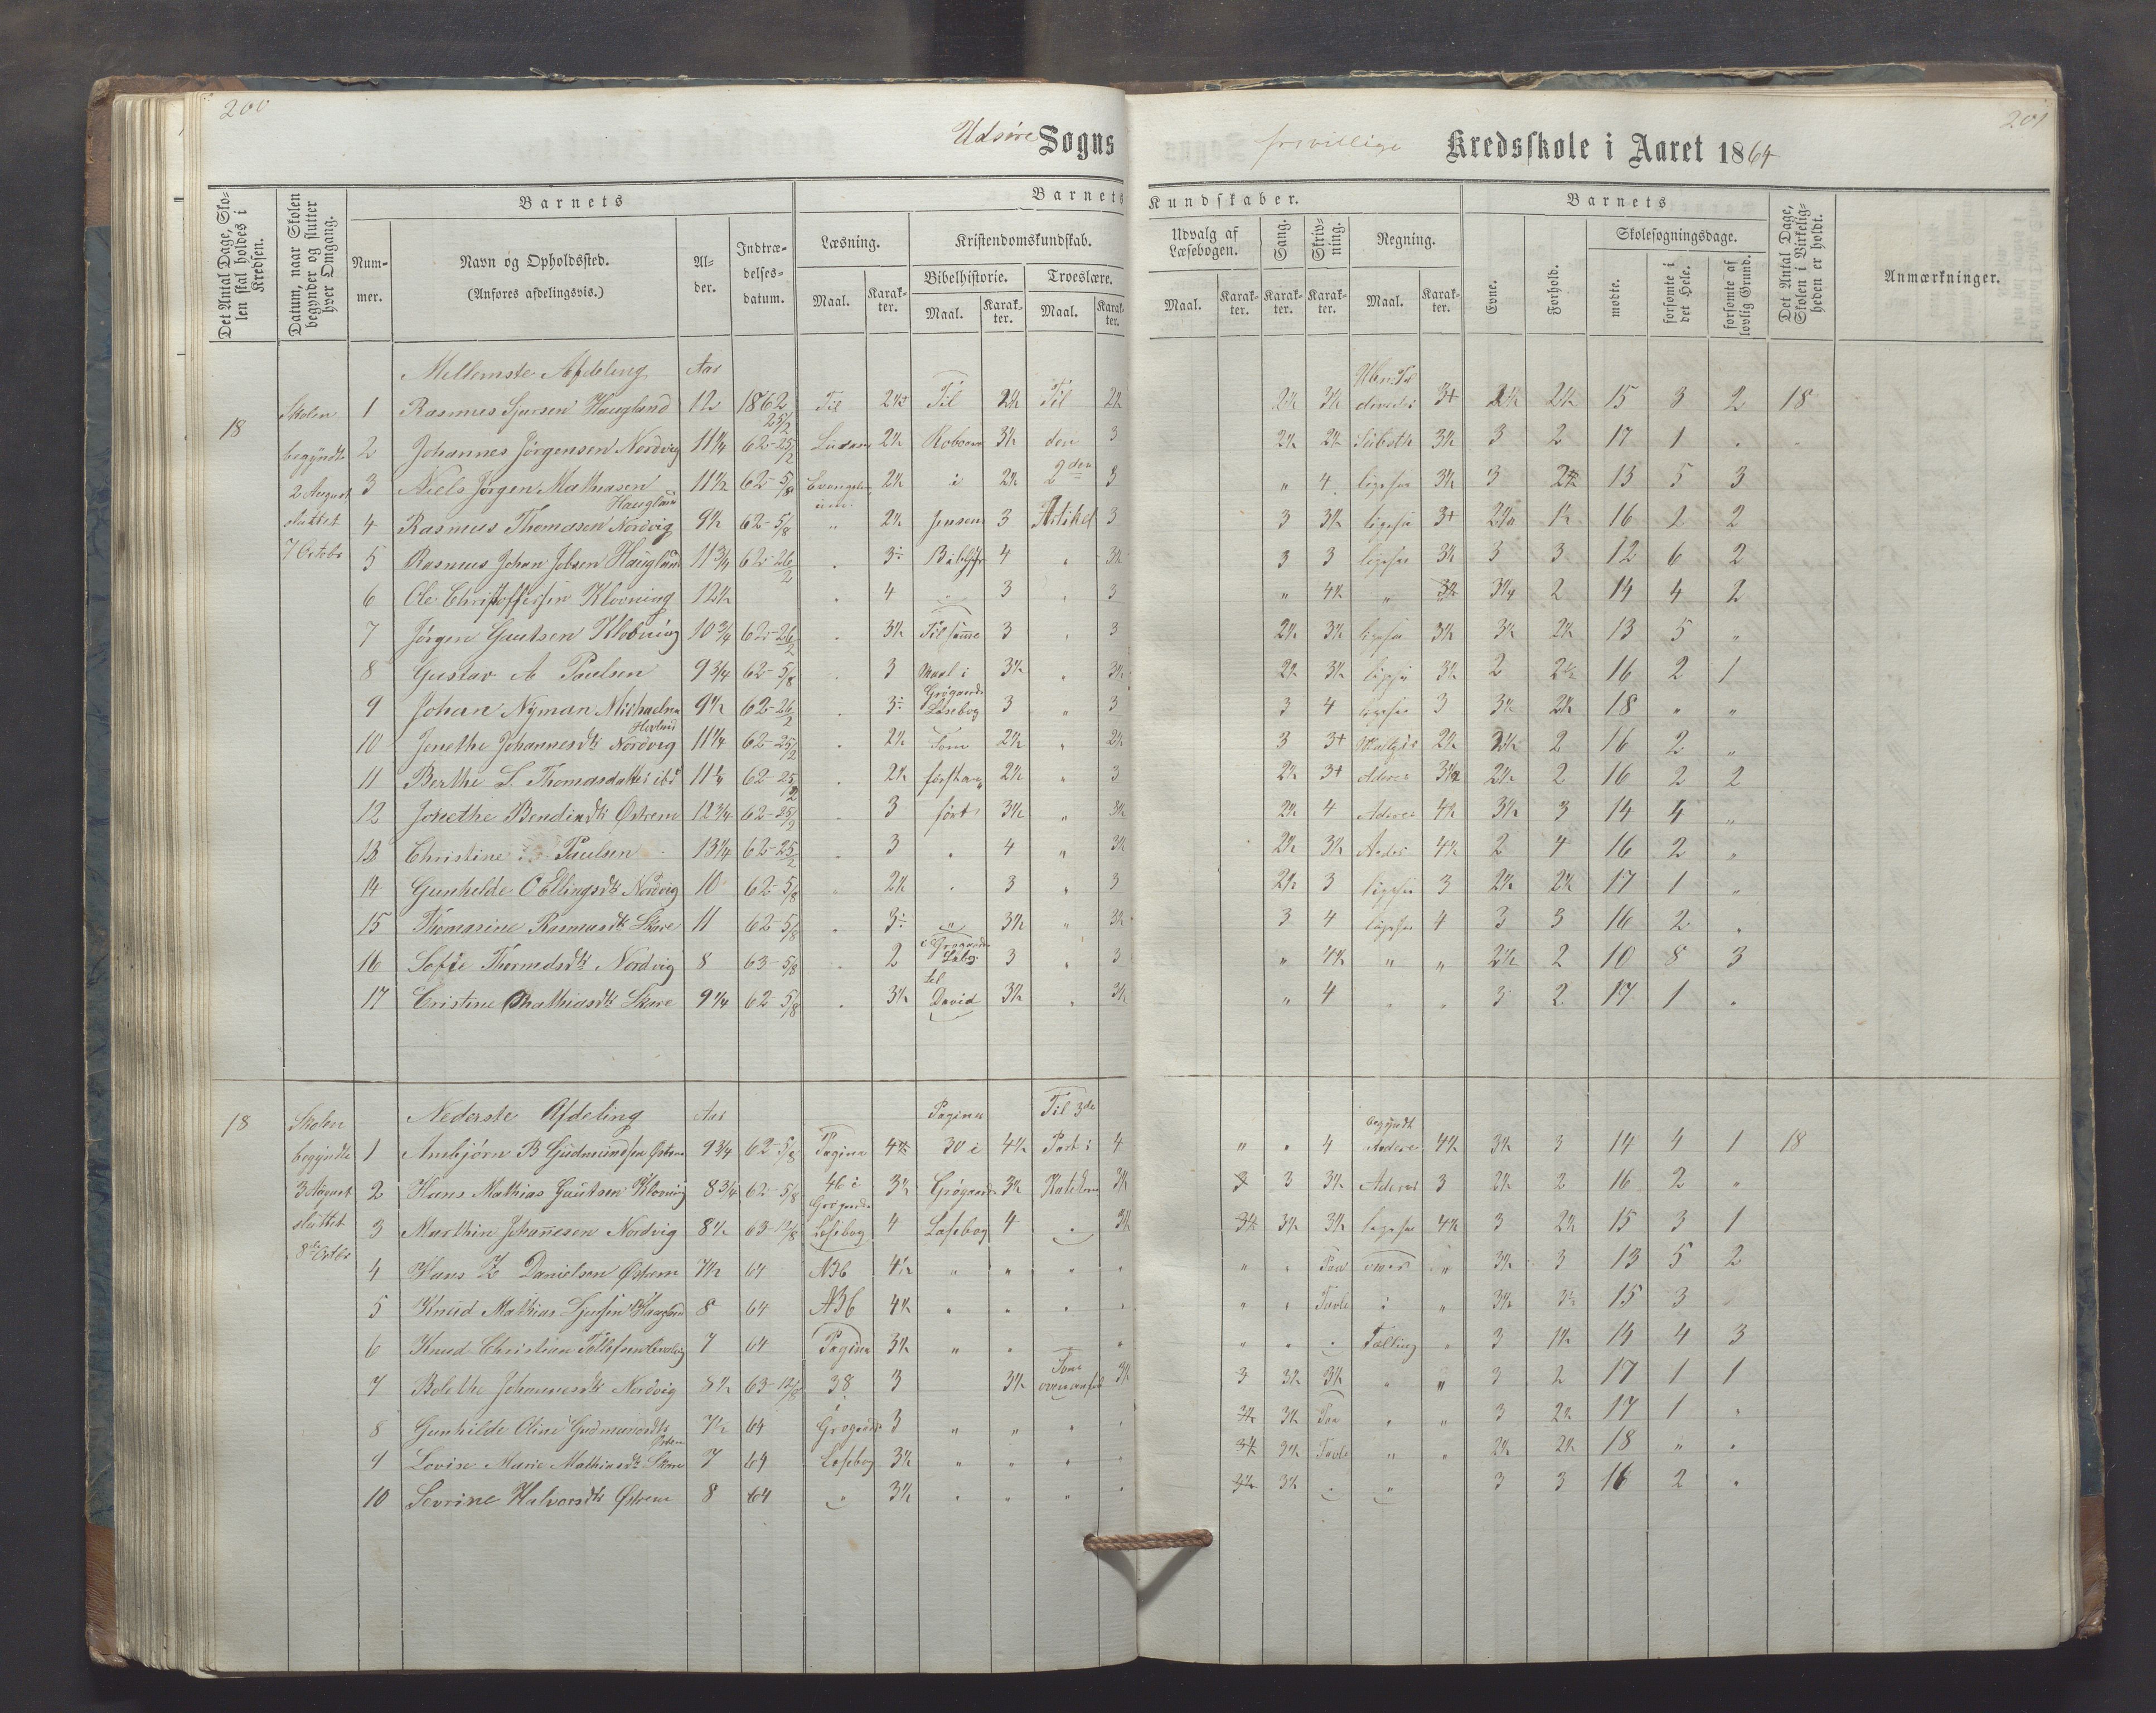 200
201
Udsire Sogns
frivillige Kredsskole i Aaret 1864
Det Antal Dage, Skolen skal holdes i Kredsen.
Datum, naar Skolen begynder og slutter hver Omgang.
Barnets
Nummer.
Navn og Opholdssted.
(Anføres afdelingsvis.)
Alder.
Indtrædelses-datum.
Barnets Kundskaber.
Læsning.
Maal.
Karakter.
Kristendomskundskab.
Bibelhistorie.
Maal.
Karakter.
Troeslære.
Maal.
Karakter.
Udvalg af Læsebogen.
Maal.
Karakter.
Sang.
Karakter.
Skrivning.
Karakter.
Regning.
Maal.
Karakter.
Barnets
Evne.
Forhold.
Skolesøgningsdage.
mødte.
forsømte i det Hele.
forsømte af lovlig Grund.
Det Antal Dage, Skolen i Virkeligheden er holdt.
Anmærkninger.
Mellemste Afdeling Aar
18 Skolen begyndt 2 August sluttet 7 Octobr
1 Rasmus Sjursen Haugland 12 1862 25/2 Til 2½+ Til 2½ Til 2½ 2½ 3½ 3+ 2½ 2½ 15 3 2 18
2 Johannes Jörgensen Nordvig 11¼ 62-25/2 2½ 3½ den 3 2½ 2½ 3½ 3 2 17 1 .
3 Niels Jörgen Mathiasen Haugland 11½ 62-5/8 Evangelium 2½ i 2½ 2den 3 " 4 ligesaa 3½ 3 2½ 13 5 3
4 Rasmus Thomasen Nordvig 9½ 62-5/8 " 2½ Jensens 3 Artikel 3 3 3½ ligesaa 3+ 2½ 1½ 16 2 2
5 Rasmus Johan Jobsen Haugland 11¾ 62-26/2 3÷ Bibelhist 4 " 3½ 3 3 ligesaa 3½ 3 3 12 6 2
6 Ole Christoffersen Klovning 12½ 4 3 3 " 4½ " 3½ 3¼ 2 14 4 2
7 Jörgen Gautsen Klovning 10¾ 62-26/2 3½ Til samme 3 3 2½ 3½ ligesaa 3½ 3½ 2½ 13 5 "
8 Gustav A Paulsen 9¾ 62-5/8 3 Maal i 3½ 3½ 2½ 3½ ligesaa 3½ 2 2½ 16 2 1
9 Johan Nyman Michaelsen Hovland 9½ 62-26/2 3÷ Grögaards Læsebog 3 " 3 3 4 ligesaa 3 3½ 2½ 18 " "
10 Jenethe Johannesdtr Nordvig 11¼ 62-25/2 2½ Som 2½ " 2½ 3 3+ 2½ 2½ 2 16 2 "
11 Berthe S. Thomasdatter ibd 11¼ 62-25/2 2½ 2½ " 3 2½ 3+ Adere 3½ 2½ 2 16 2 2
12 Jonethe Bendindtr Østrem 12¾ 62-25/2 3 ført 3½ " 3½ 2½ 4 Adere 4½ 3½ 3 14 4 "
13 Christine Paulsen 13¼ 62-25/2 3 4 " 3½ 2½ 3½ 4½ 2 4 16 2 "
14 Gunhelde O Ellingsdtr Nordvig 10 62-5/8 2½ 3 " 3 2½ 3 ligesaa 3 2½ 2½ 17 1 "
15 Thomasine Rasmusdtr Skare 11 62-5/8 3÷ " 3½ " 3½ 3 4 ligesaa 4 3 3 16 2 "
16 Sofie Thormodsdtr Nordvig 8 63-5/8 2 i Grögaards Læbg. 3 3 " 4½ " " 2½ 2 10 8 3
17 Cristine Mathiasdtr Skare 9¼ 62-5/8 3½ til David 3½ 3½ " 4 " " 3 2 17 1 "
Nederste Afdeling Aar
18 Skolen begyndte 3 August sluttet 8de Octbr
1 Anbjörn B Gudmundsen Østrem 9¾ 62-5/8 Pagina 4½ Pagina 30 i 4½ Til 3de Part i 4 " " 4 begyndt Addere 4½ 3½ 3 14 4 1 18
2 Hans Mathias Gautsen Klovning 8¾ 62-5/8 46 i 3½ Grögaards 3½ 3½ 3 3 3½ Adere 3 2½ 2 16 2 "
3 Marthin Johanesen Nordvig 8½ 63-12/8 Grögaards Læsebog 4 Læsebog 4 3½ 3½ 3½ 3½ ligesaa 4½ 3 2½ 15 3 1
4 Hans Z Danielsen Østrem 7½ 64 4½ " " " " " " Paa " 3½ 3 13 5 2
5 Knud Mathias Sjursen Haugland 8 64 ABC 4½ " " " " " " Tavle i " 3½ 3½ 15 3
6 Knud Christian Tollefsen Nordvig 7 64 Pagina 3½ " " " " " Tælling " 3 1½ 14 4 3
7 Bolethe Johannesdtr Nordvig 8½ 63-12/8 38 3 3½ Som ovenanført 3½ 3 3½ 3½ " " 3 2 17 1 1
8 Gunhilde Oline Gudmundsdtr Østrem 7½ 64 i Grögaards 3 " " " " 3½ 3½ Paa " " 3 2½ 17 1 "
9 Lovise Marie Mathiasdtr Skare 7 64 Læsebog 3½ " " " " 3½ 3½ Tavle " " 2½ 2½ 18 " "
10 Sevrine Halvorsdtr Østrem 8 64 " 3½ " " " " 3½ 3½ " " 3 3 16 2 "